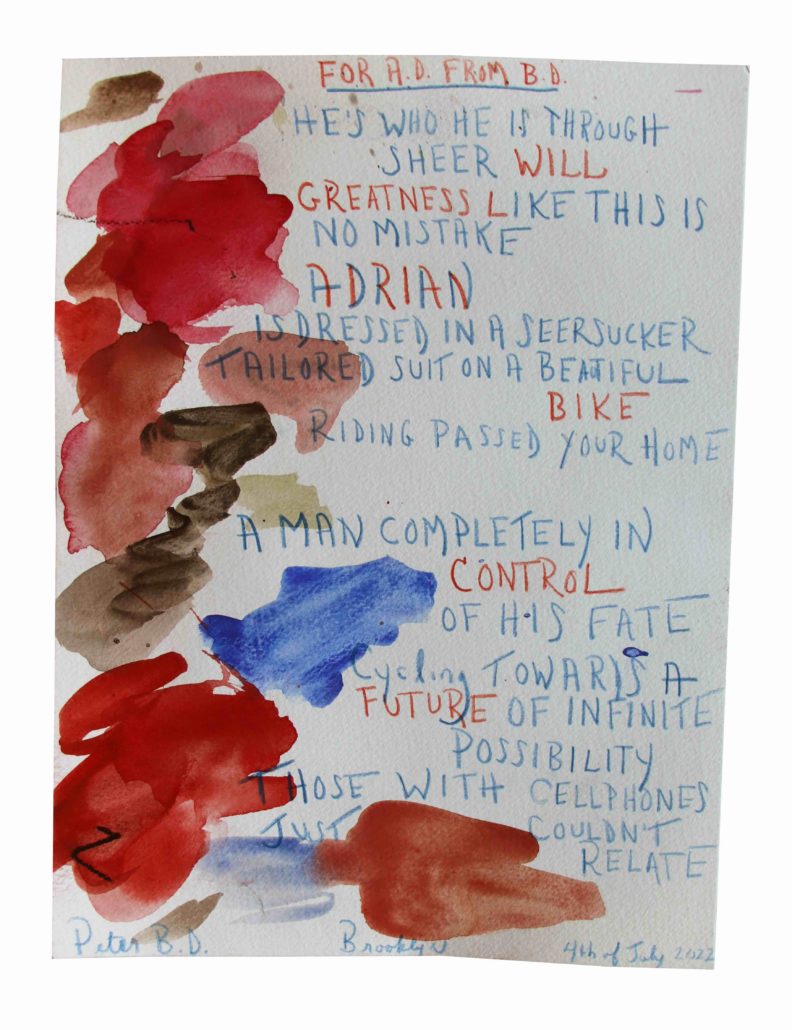 FOR A.D. FROM B.D.
HE'S WHO HE IS THROUGH
SHEER WILL
GREATNESS LIKE THIS IS
NO MISTAKE
ADRIAN
IS DRESSED IN A SEERSUCKER
TAILORED SUIT ON A BEAUTIFUL
BIKE
RIDING PASSED YOUR HOME
A MAN COMPLETELY IN
CONTROL
OF HIS FATE
Cycling TOWARDS A
FUTURE OF INFINITE
POSSIBILITY
THOSE WITH CELLPHONES
JUST COULDN'T
RELATE
Peter B.D. Brooklyn 4th of July 2022